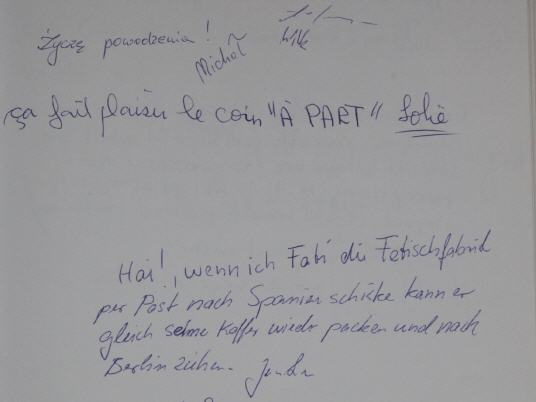 Życzę powodzenia!
Michał
ça fait plaisir le coin "À PART" Solie
Hai!, wenn ich Fati die Fetischfabrik
per Post nach Spanien schicke kann er
gleich seine Koffer wieder packen und nach
Berlin ziehen.